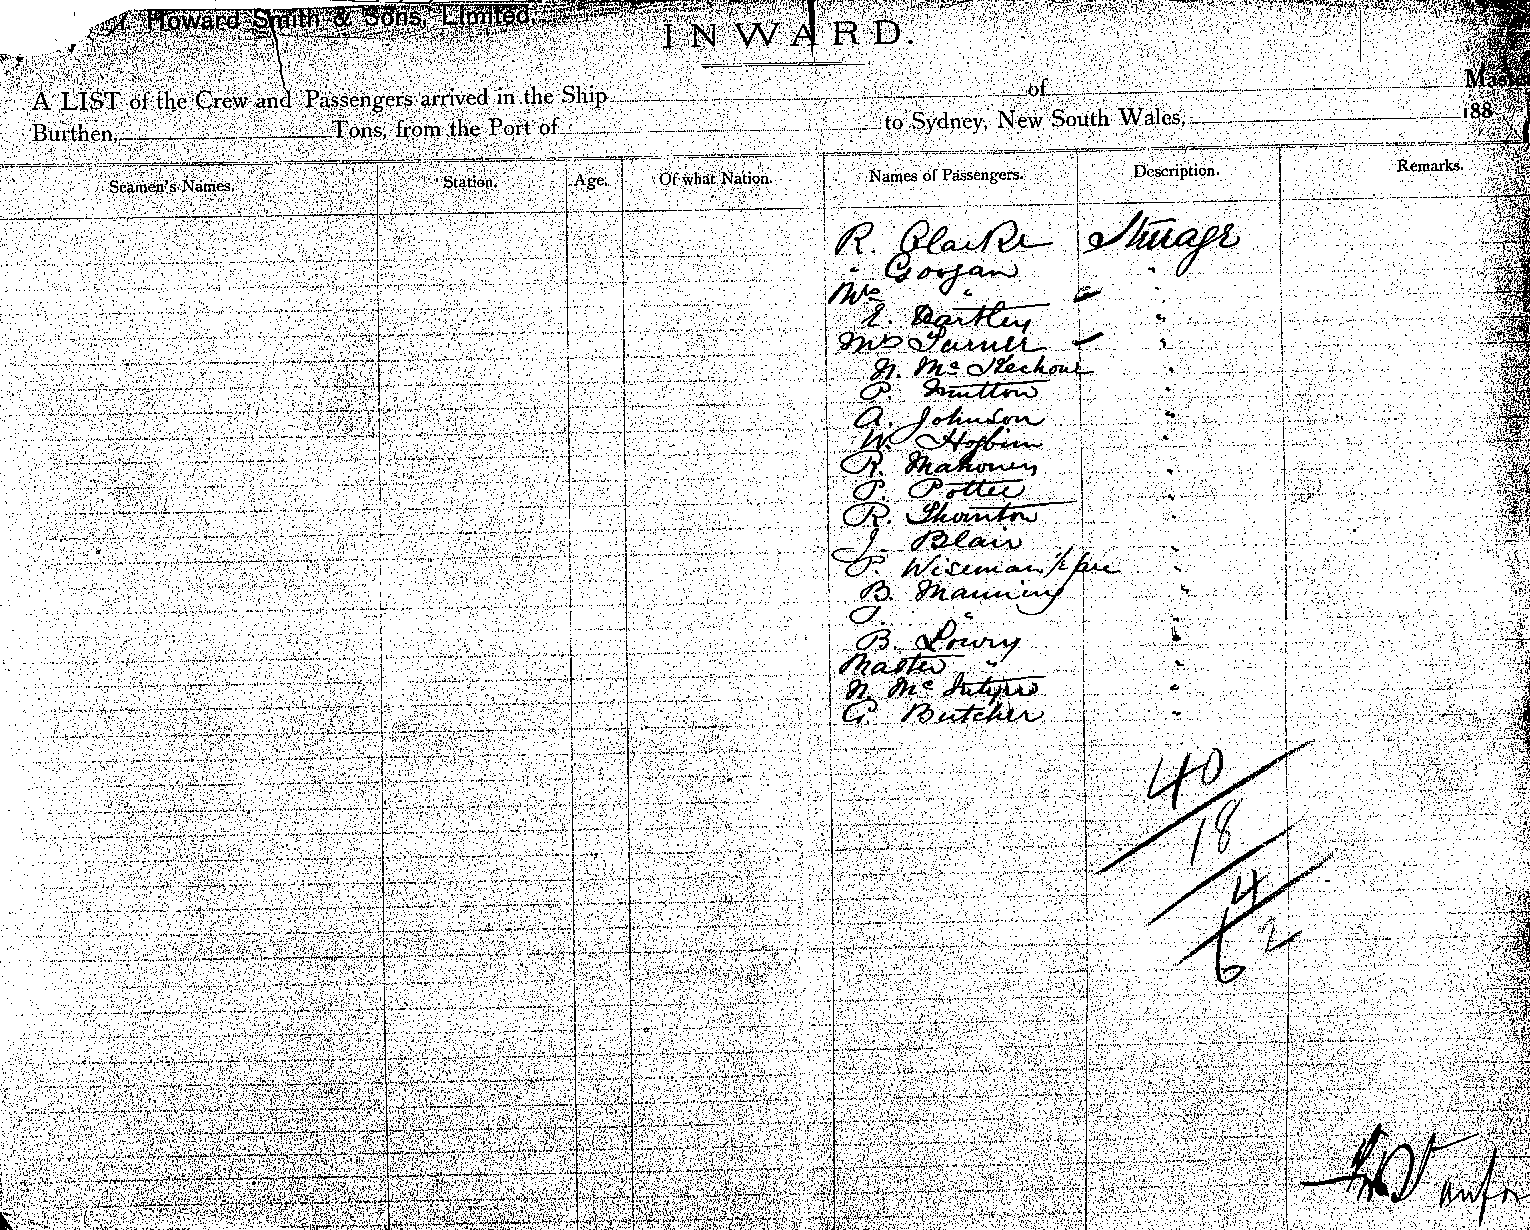 Howard Smith & Sons, Limited.
INWARD.
A LIST of the Crew and Passengers arrived in the Ship of
Burthen, Tons, from the Port of to Sydney, New South Wales, 188
Seamen's Names. Station. Age. Of what Nation. Names of Passengers. Description. Remarks.
R. Clarke Steerage
" "
Mrs " "
E. Hartley "
Mrs Turner "
N. Mc "
P. Mutton "
A. Johnson "
W. "
R. Mahoney "
P. Potter "
R. Thornton "
J. Blair "
P. Wiseman 1/2 fare "
B. Manning "
T. " "
B. Lowry "
Master " "
N. McIntyre "
G. Butcher "
40
18
4
62